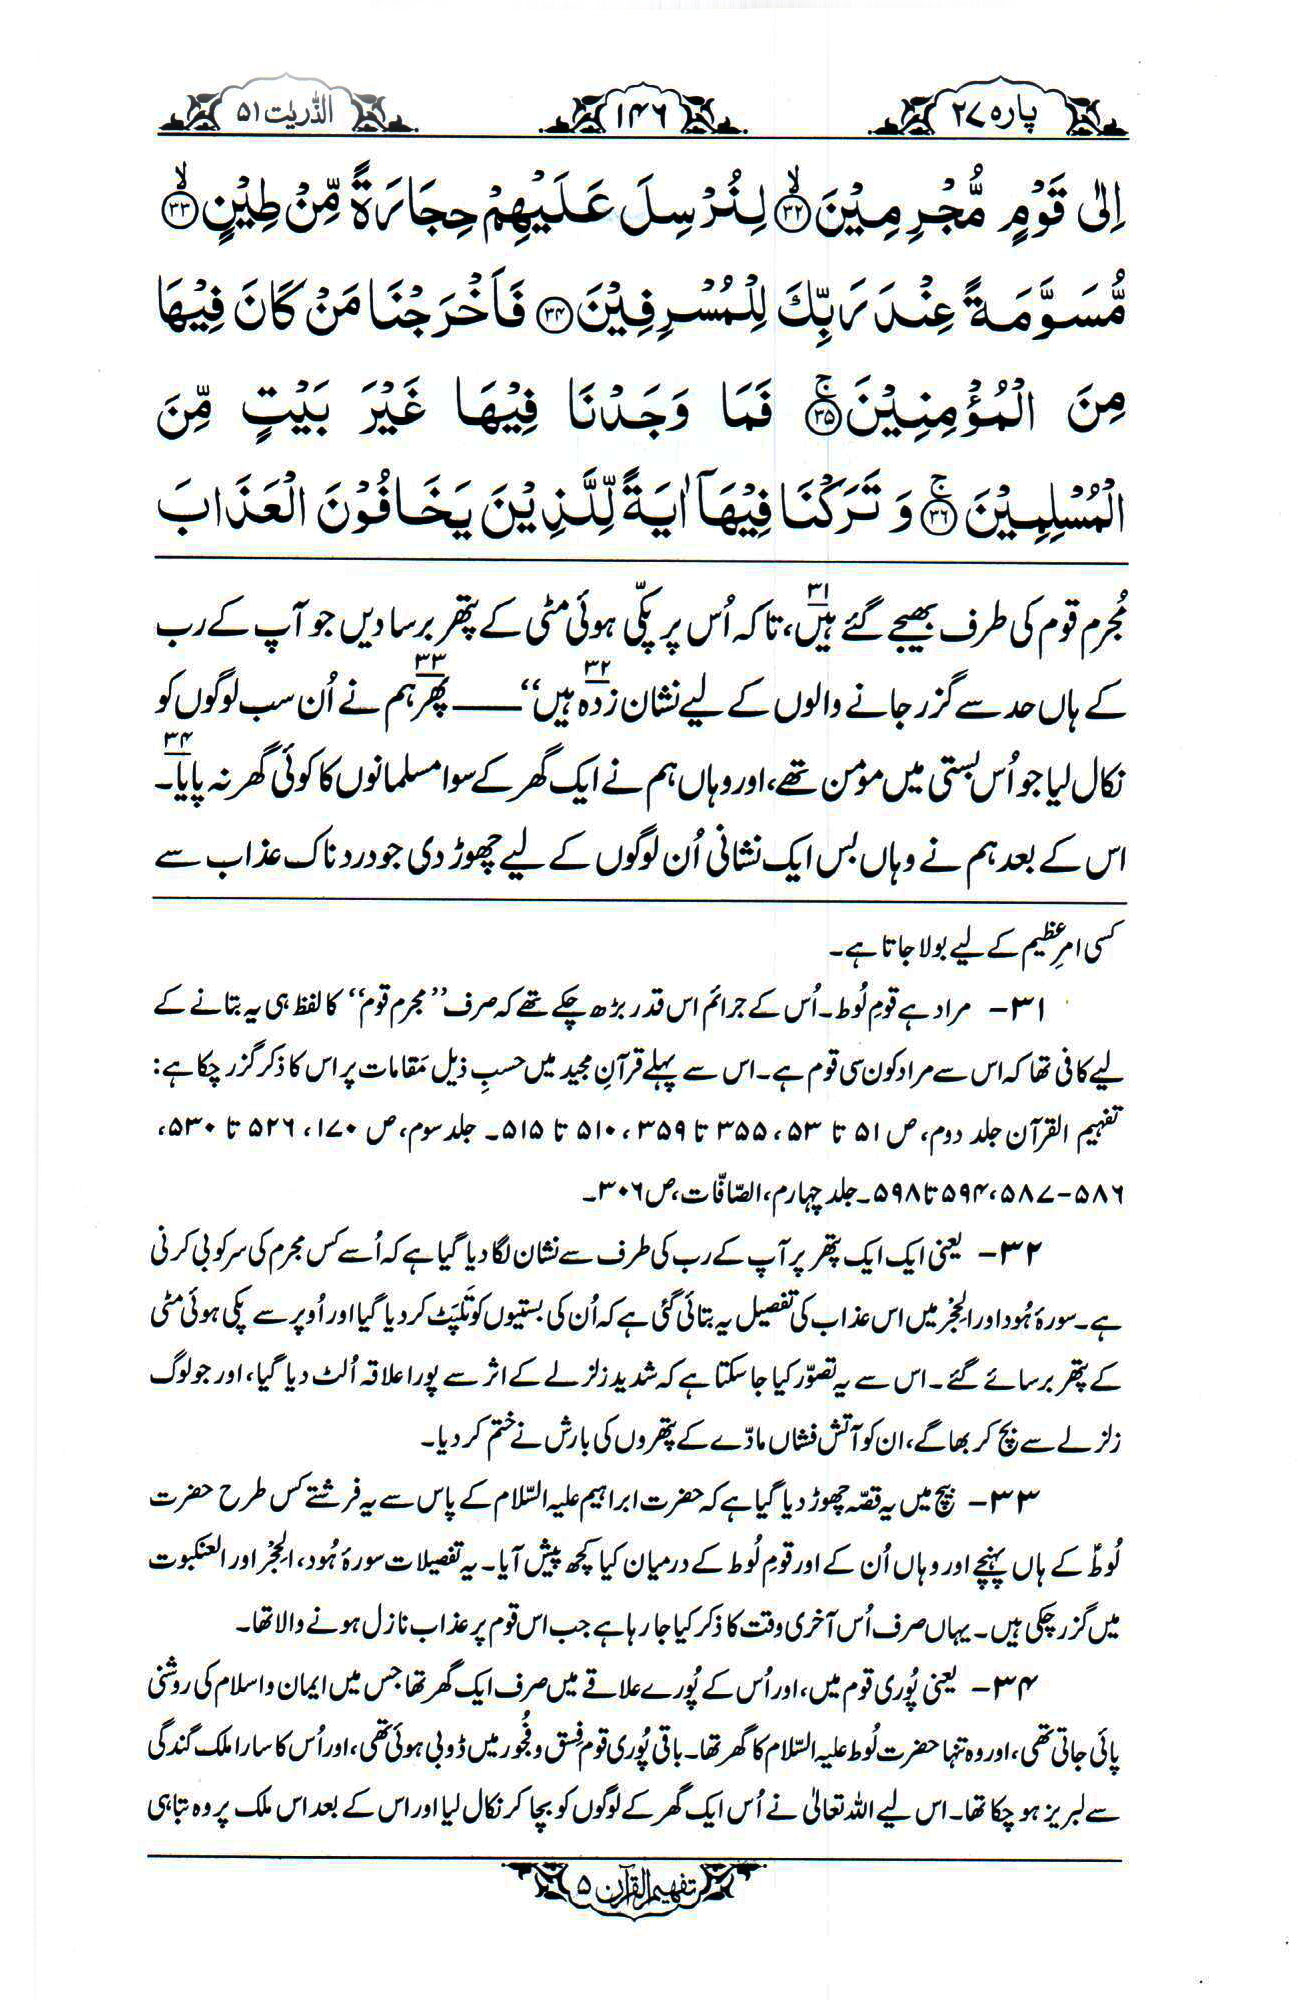 پارہ ۲۷
۱۴۶
الذّٰریٰت ۵۱
اِلٰی قَوْمٍ مُّجْرِمِیْنَ ﴿۳۲﴾ۙ لِنُرْسِلَ عَلَیْهِمْ حِجَارَةً مِّنْ طِیْنٍ ﴿۳۳﴾ۙ
مُّسَوَّمَةً عِنْدَ رَبِّكَ لِلْمُسْرِفِیْنَ ﴿۳۴﴾ فَاَخْرَجْنَا مَنْ كَانَ فِیْهَا
مِنَ الْمُؤْمِنِیْنَ ﴿۳۵﴾ۚ فَمَا وَجَدْنَا فِیْهَا غَیْرَ بَیْتٍ مِّنَ
الْمُسْلِمِیْنَ ﴿۳۶﴾ۚ وَ تَرَكْنَا فِیْهَاۤ اٰیَةً لِّلَّذِیْنَ یَخَافُوْنَ الْعَذَابَ
مُجرم قوم کی طرف بھیجے گئے ہیں۳۱، تاکہ اُس پر پکّی ہوئی مٹی کے پتھر برسا دیں جو آپ کے رب
کے ہاں حد سے گزر جانے والوں کے لیے نشان زدہ۳۲ ہیں“ —— پھر۳۳ ہم نے اُن سب لوگوں کو
نکال لیا جو اُس بستی میں مومن تھے، اور وہاں ہم نے ایک گھر کے سوا مسلمانوں کا کوئی گھر نہ پایا۳۴۔
اس کے بعد ہم نے وہاں بس ایک نشانی اُن لوگوں کے لیے چھوڑ دی جو دردناک عذاب سے
کسی امرِ عظیم کے لیے بولا جاتا ہے۔
۳۱- مراد ہے قومِ لُوط۔ اُس کے جرائم اس قدر بڑھ چکے تھے کہ صرف ”مجرم قوم“ کا لفظ ہی یہ بتانے کے
لیے کافی تھا کہ اس سے مراد کون سی قوم ہے۔ اس سے پہلے قرآنِ مجید میں حسبِ ذیل مَقامات پر اس کا ذکر گزر چکا ہے:
تفہیم القرآن جلد دوم، ص ۵۱ تا ۵۳، ۳۵۵ تا ۳۵۹، ۵۱۰ تا ۵۱۵۔ جلد سوم، ص ۱۷۰، ۵۲۶ تا ۵۳۰،
۵۸۶-۵۸۷، ۵۹۴ تا ۵۹۸۔ جلد چہارم، الصّافّات، ص ۳۰۶۔
۳۲- یعنی ایک ایک پتھر پر آپ کے رب کی طرف سے نشان لگا دیا گیا ہے کہ اُسے کس مجرم کی سرکوبی کرنی
ہے۔ سورۂ ہُود اور الحِجْر میں اس عذاب کی تفصیل یہ بتائی گئی ہے کہ اُن کی بستیوں کو تَلپَٹ کر دیا گیا اور اُوپر سے پکی ہوئی مٹی
کے پتھر برسائے گئے۔ اس سے یہ تصوّر کیا جا سکتا ہے کہ شدید زلزلے کے اثر سے پورا علاقہ اُلٹ دیا گیا، اور جو لوگ
زلزلے سے بچ کر بھاگے، ان کو آتش فشاں مادّے کے پتھروں کی بارش نے ختم کر دیا۔
۳۳- بیچ میں یہ قصّہ چھوڑ دیا گیا ہے کہ حضرت ابراہیم علیہ السّلام کے پاس سے یہ فرشتے کس طرح حضرت
لُوطؑ کے ہاں پہنچے اور وہاں اُن کے اور قومِ لُوط کے درمیان کیا کچھ پیش آیا۔ یہ تفصیلات سورۂ ہُود، الحِجْر اور العنکبوت
میں گزر چکی ہیں۔ یہاں صرف اُس آخری وقت کا ذکر کیا جا رہا ہے جب اس قوم پر عذاب نازل ہونے والا تھا۔
۳۴- یعنی پُوری قوم میں، اور اُس کے پُورے علاقے میں صرف ایک گھر تھا جس میں ایمان و اسلام کی روشنی
پائی جاتی تھی، اور وہ تنہا حضرت لُوط علیہ السّلام کا گھر تھا۔ باقی پُوری قوم فِسق و فُجور میں ڈوبی ہوئی تھی، اور اُس کا سارا ملک گندگی
سے لبریز ہو چکا تھا۔ اس لیے اللہ تعالیٰ نے اُس ایک گھر کے لوگوں کو بچا کر نکال لیا اور اس کے بعد اس ملک پر وہ تباہی
تفہیم القرآن ۵